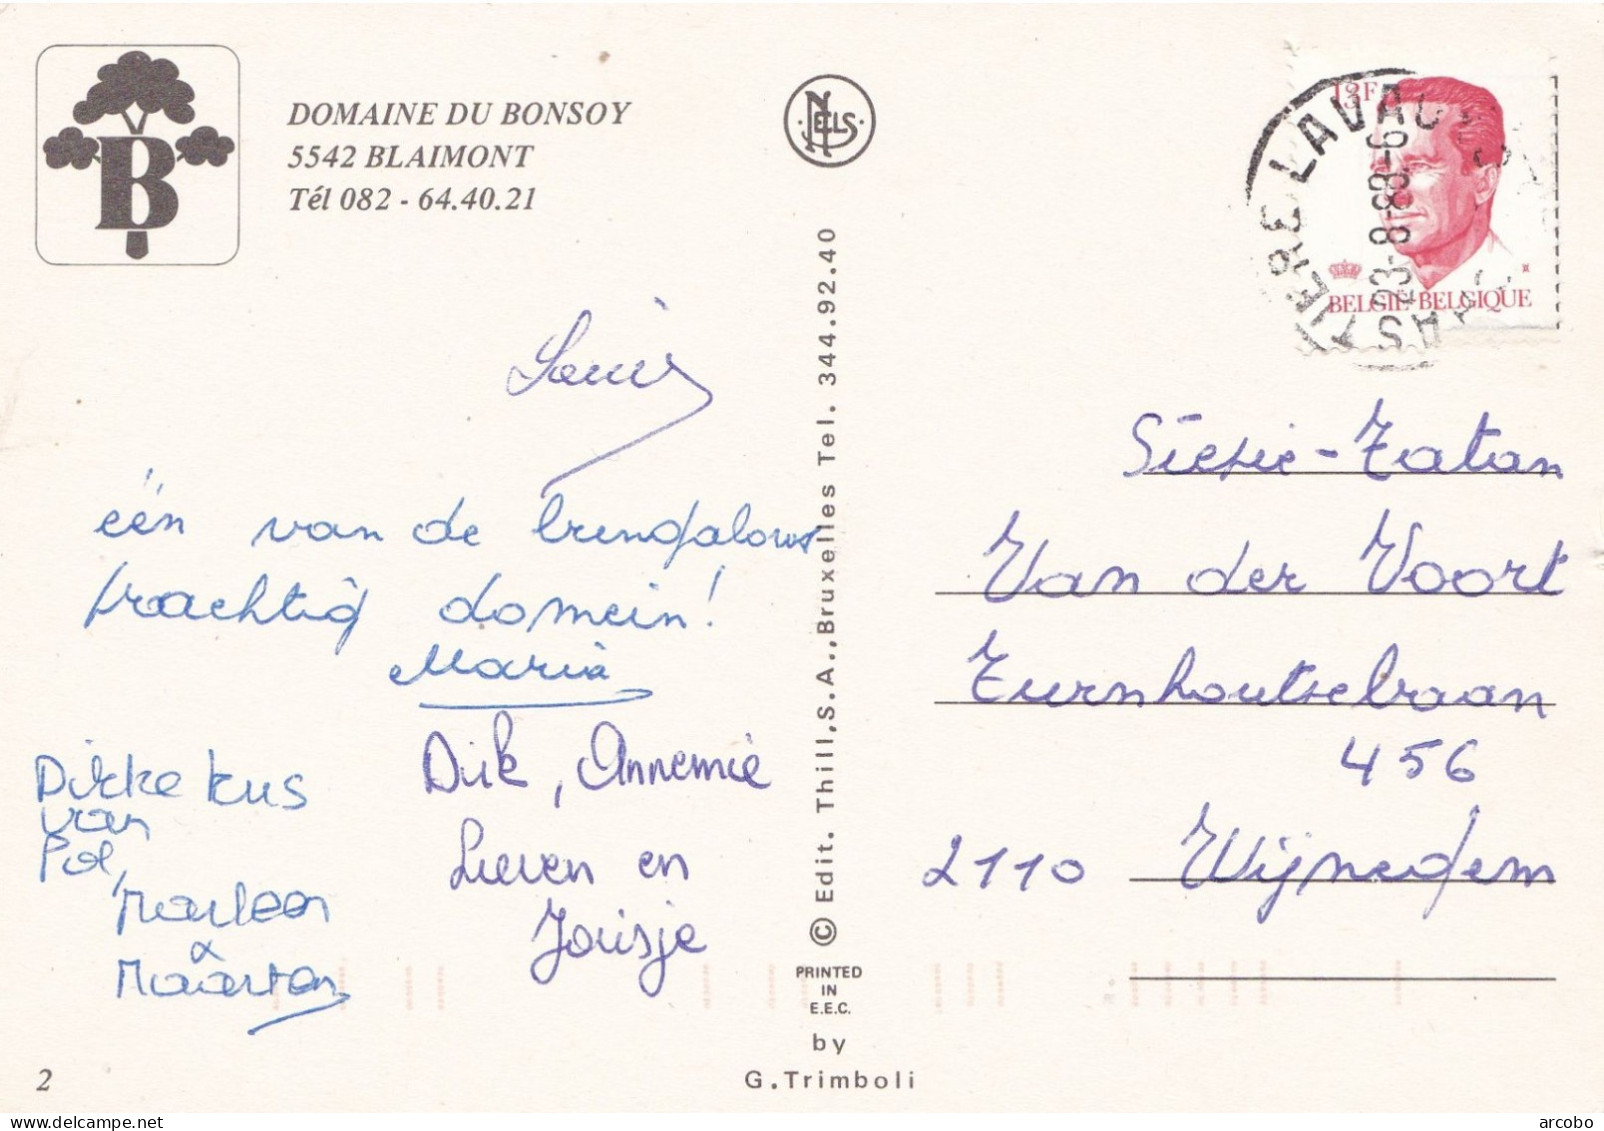 B
DOMAINE DU BONSOY
5542 BLAIMONT
Tél 082 - 64.40.21
NELS
13F
BELGIË-BELGIQUE
HASTIERE LAVAUX
23-8-88-6
Louis
één van de bungalows
prachtig domein!
Maria
Dirk, Annemie
Lieven en
Jousje
Dikke kus
van
Pol,
Marleen
&
Maarten
2
© Edit. Thill,S.A.,Bruxelles Tel. 344.92.40
PRINTED
IN
E.E.C.
by
G.Trimboli
Van der Voort
Turnhoutsebraan
456
2110 Wijnegem
arcobo